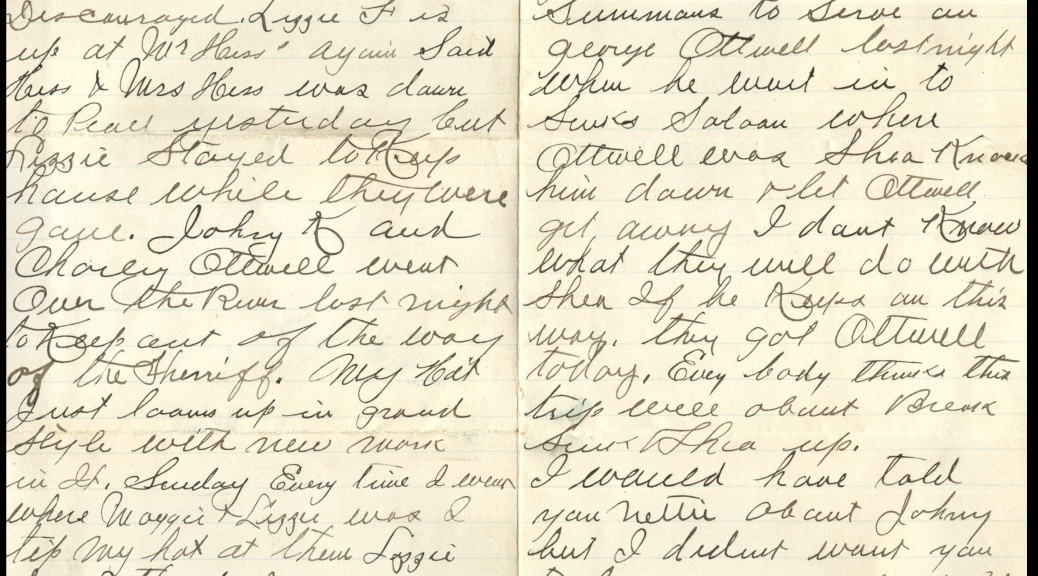 Discouraged. Lizzie F is
up at Mr Hess' again Said
Hess & Mrs Hess was down
to Pearl yesterday but
Lizzie Stayed to Keep
house while they were
gone. Johny K and
Charley Ottwell went
Over the River last night
to Keep out of the way
of the Sherriff. My Hat
Just looms up in grand
style with new mark
in It. Sunday Every time I went
where Maggie & Lizzie was I
tip my hat at them Lizzie
Summans to Serve on
george Ottwell last night
when he went in to
Saloon where
Ottwell was Shea Knocks
him down & let Ottwell
get away I dont Know
what they will do with
Shea If he Keeps on this
way. they got Ottwell
today. Every body thinks this
trip will about Break
Shea up.
I would have told
you Nettie about Johny
but I didnt want you